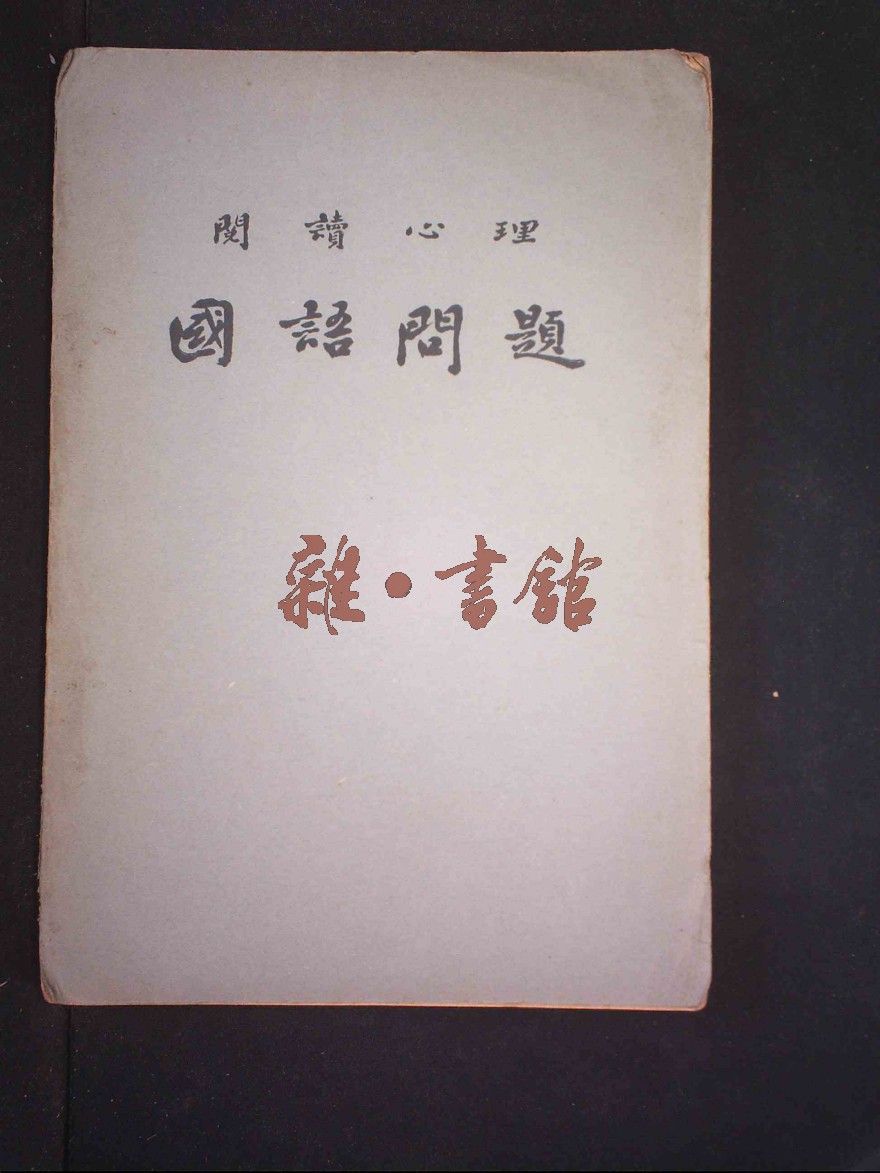 閱讀心理
國語問題
雜·書館